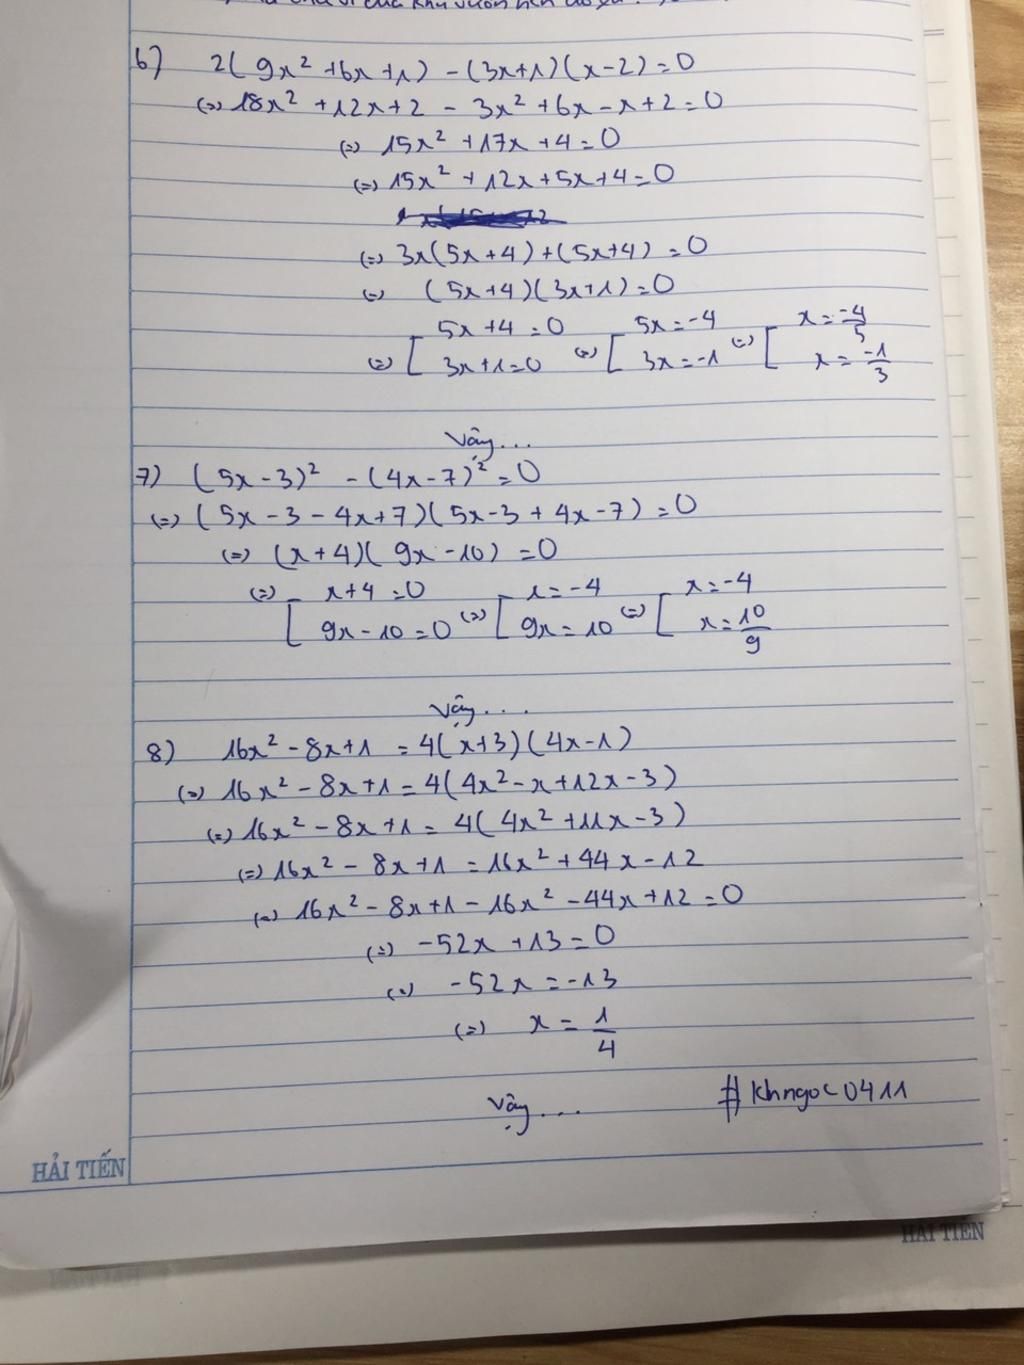 6) 2(9x² + 6x + 1) - (3x+1)(x-2) = 0
(=) 18x² + 12x + 2 - 3x² + 6x - x + 2 = 0
(=) 15x² + 17x + 4 = 0
(=) 15x² + 12x + 5x + 4 = 0
(=) 3x(5x+4) + (5x+4) = 0
(=) (5x+4)(3x+1) = 0
(=) [ 5x+4 = 0 (=) [ 5x = -4 (=) [ x = -4/5
3x+1 = 0 3x = -1 x = -1/3
Vậy...
7) (5x-3)² - (4x-7)² = 0
(=) (5x - 3 - 4x + 7)(5x - 3 + 4x - 7) = 0
(=) (x+4)(9x-10) = 0
(=) [ x+4 = 0 (=) [ x = -4 (=) [ x = -4
9x - 10 = 0 9x = 10 x = 10/9
Vậy...
8) 16x² - 8x + 1 = 4(x+3)(4x-1)
(=) 16x² - 8x + 1 = 4(4x² - x + 12x - 3)
(=) 16x² - 8x + 1 = 4(4x² + 11x - 3)
(=) 16x² - 8x + 1 = 16x² + 44x - 12
(=) 16x² - 8x + 1 - 16x² - 44x + 12 = 0
(=) -52x + 13 = 0
(=) -52x = -13
(=) x = 1/4
Vậy...
#Khngoc0411
HẢI TIẾN
HẢI TIẾN